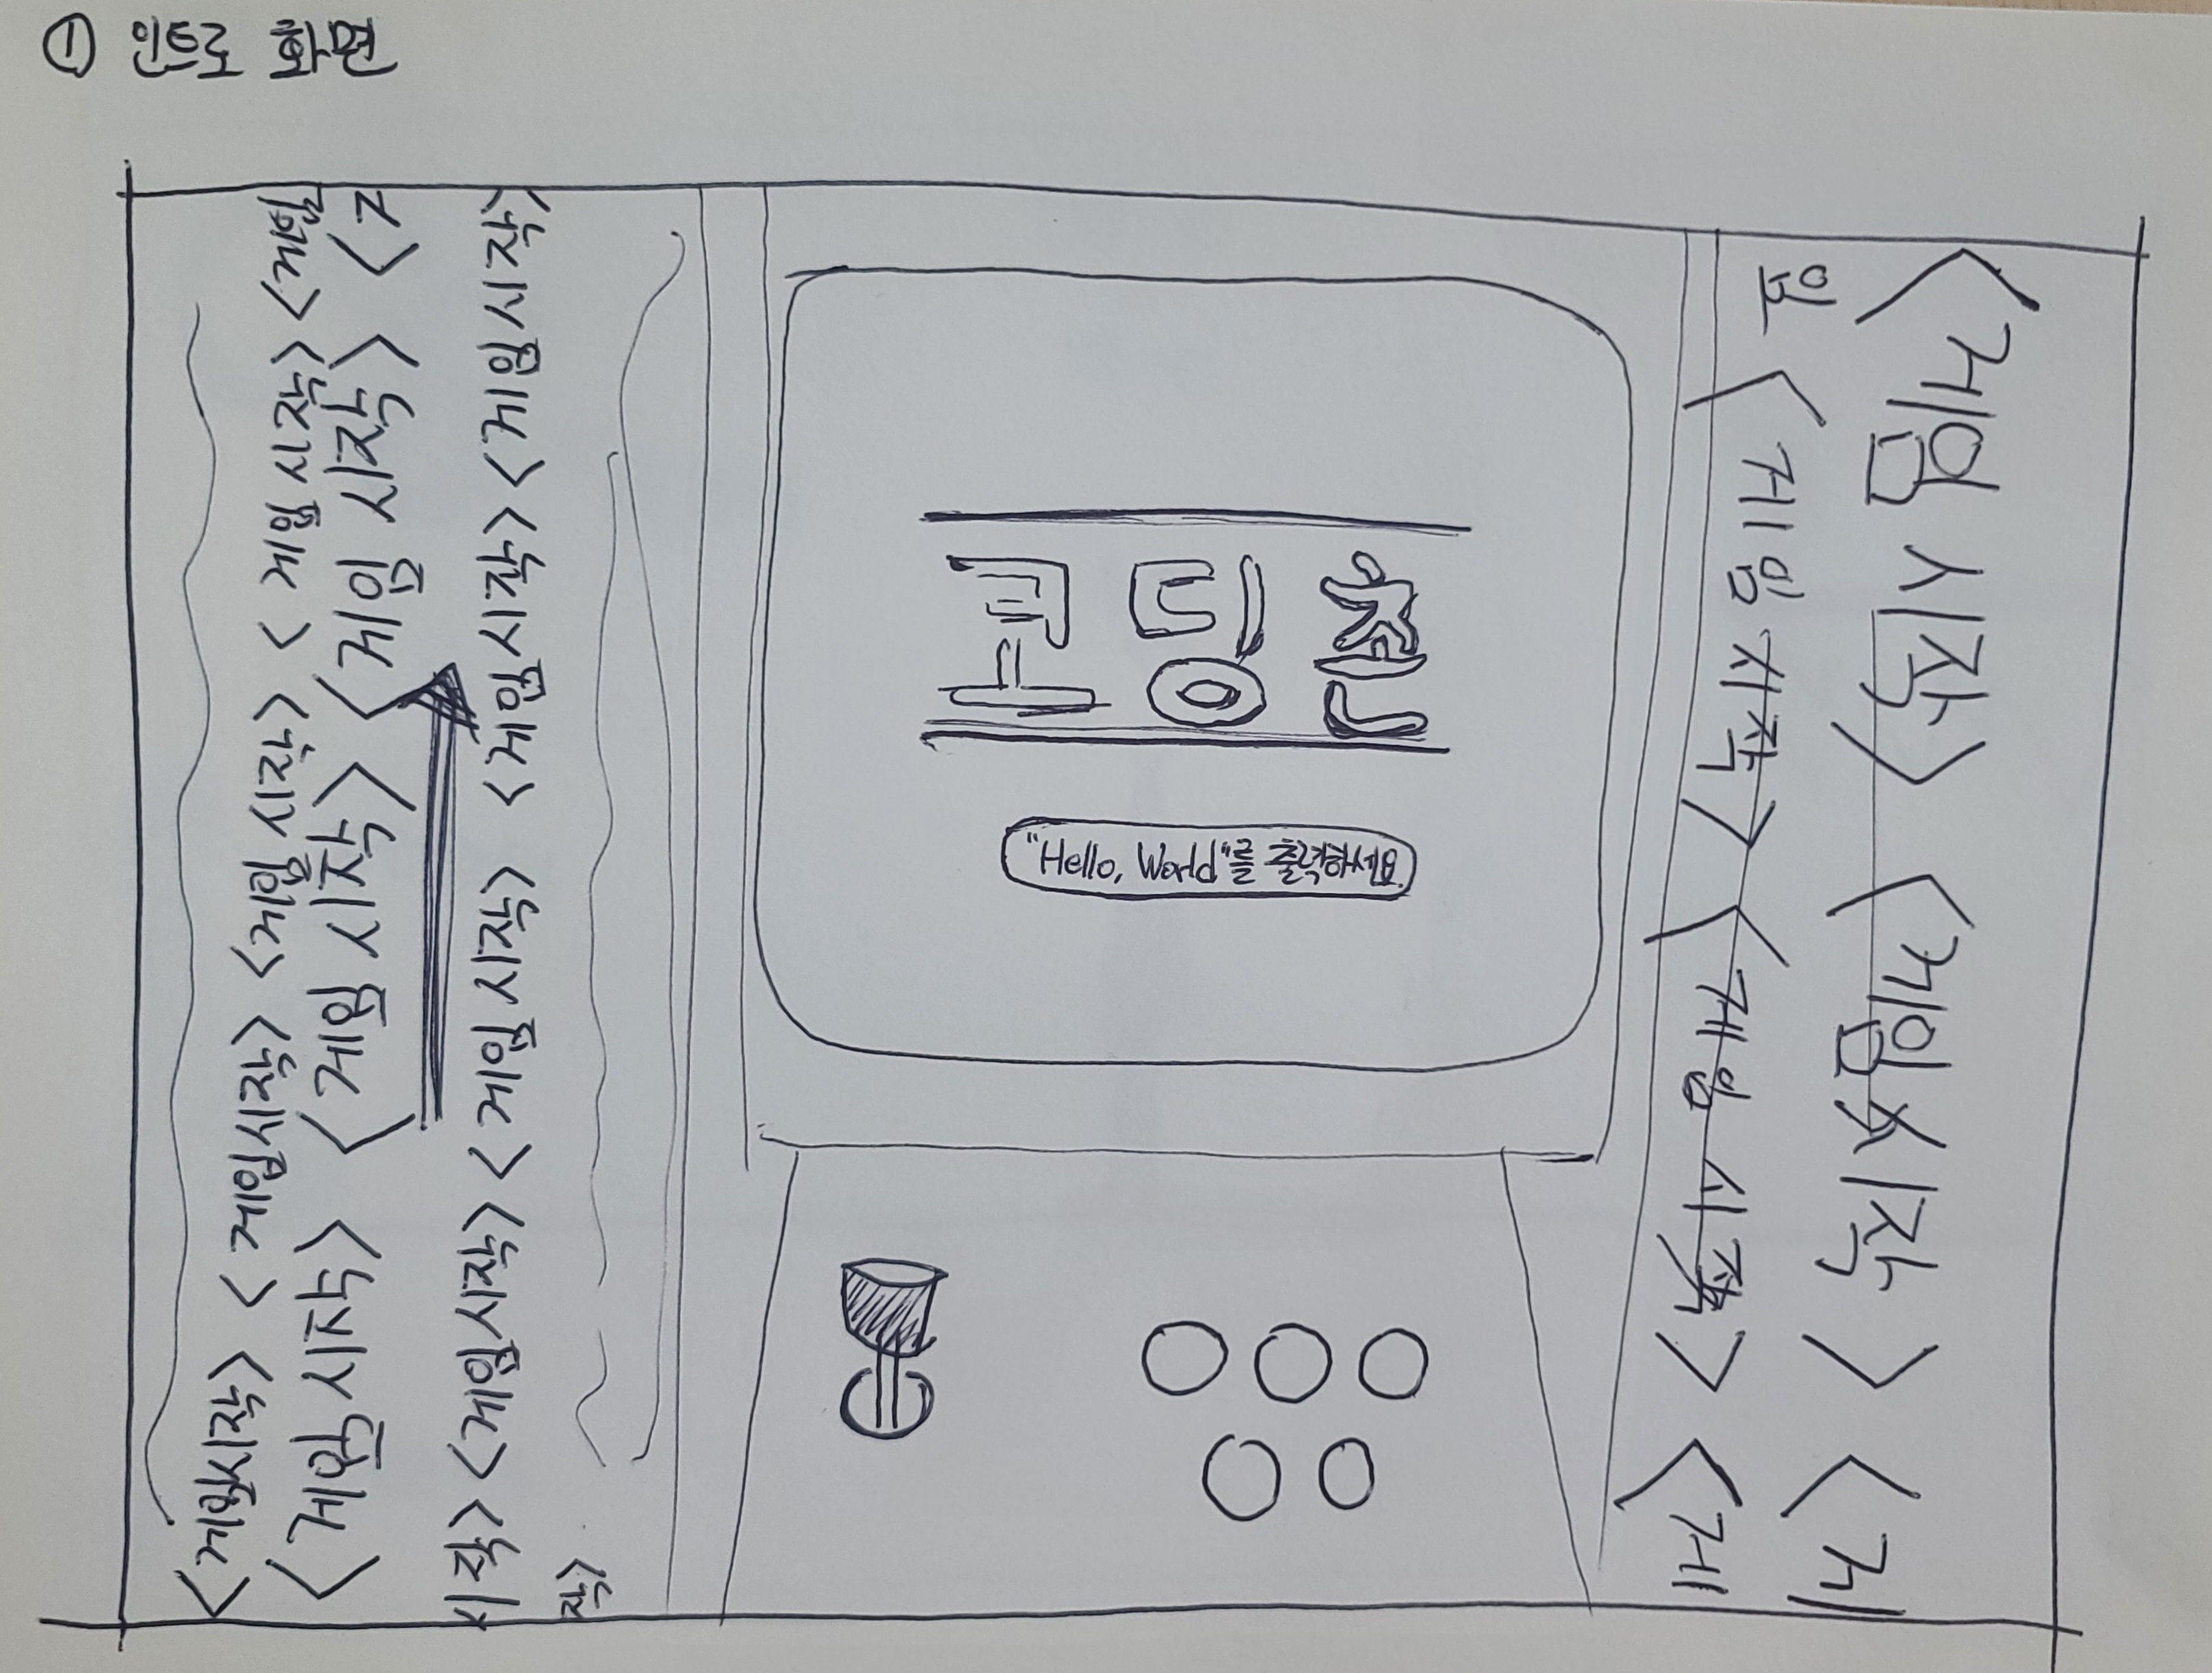 ① 인트로 화면
<게임시작> <게임시작> <게임 시작> <게임 시작> <게임
<게임 시작> <게임 시작> <게임 시작> <ㄱ
시작> <게임 시작> <게임 시작> <게임 시작> <게임 시작>
작>
코딩천
"Hello, World"를 출력하세요.
임 <게임 시작> <게임 시작> <게
<게임 시작> <게임 시작> <게